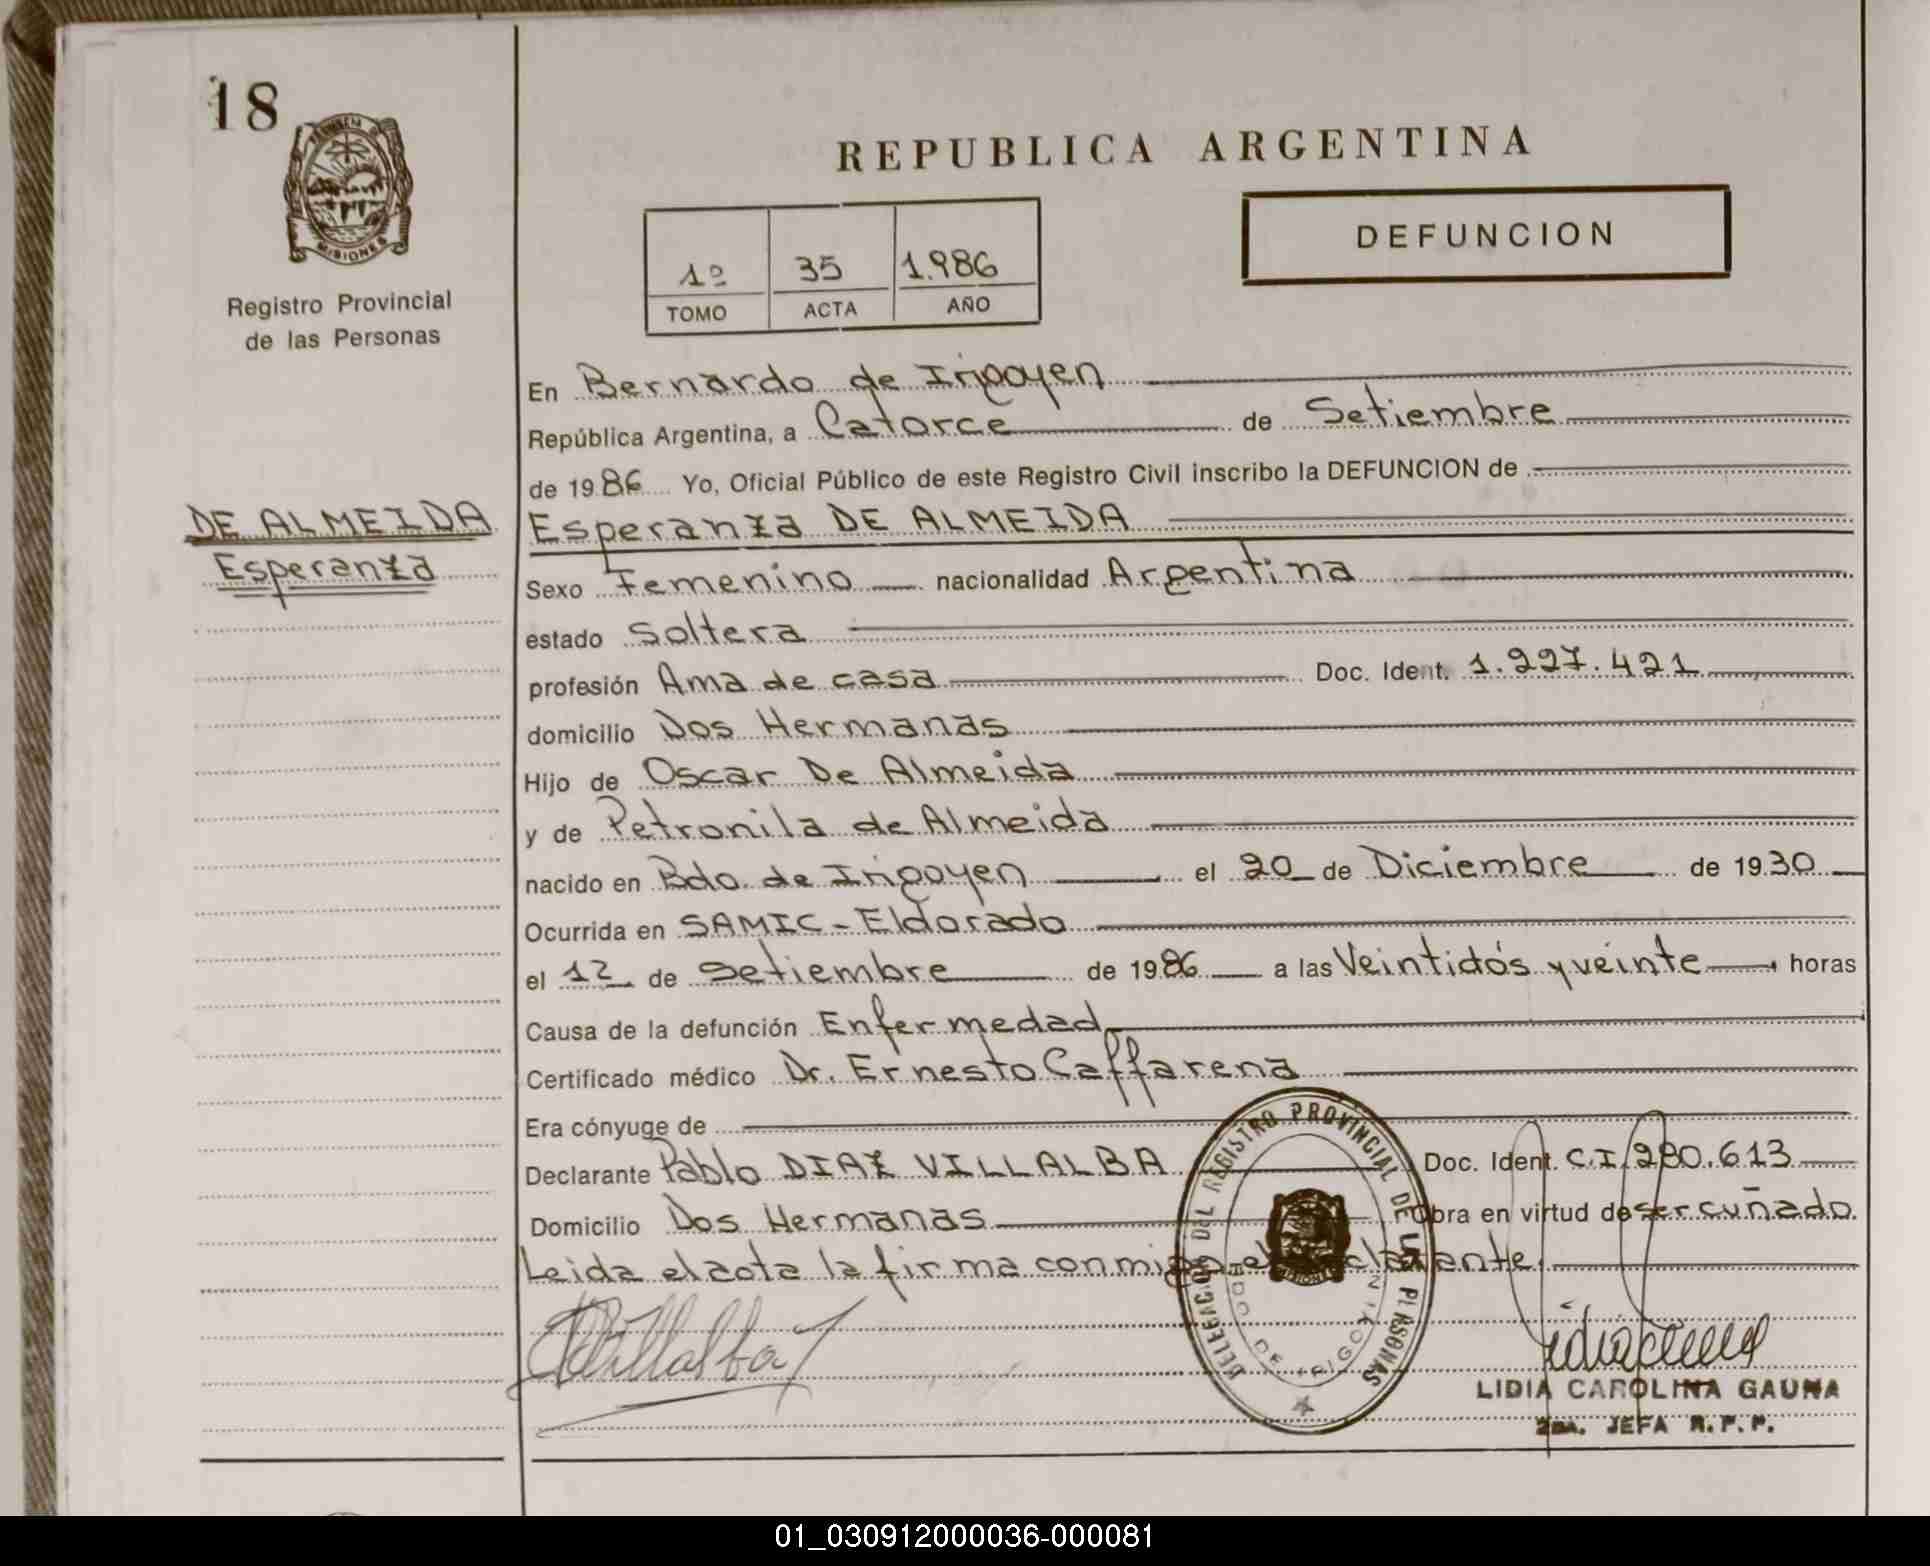 18
PROVINCIA DE
MISIONES
Registro Provincial
de las Personas
REPUBLICA ARGENTINA
DEFUNCION
1º 35 1.986
TOMO ACTA AÑO
En Bernardo de Irigoyen
República Argentina, a Catorce de Setiembre
de 1986 Yo, Oficial Público de este Registro Civil inscribo la DEFUNCION de
DE ALMEIDA
Esperanza
Esperanza DE ALMEIDA
Sexo Femenino nacionalidad Argentina
estado Soltera
profesión Ama de casa Doc. Ident. 1.227.421
domicilio Dos Hermanas
Hijo de Oscar De Almeida
y de Petronila de Almeida
nacido en Bdo. de Irigoyen el 20 de Diciembre de 1930
Ocurrida en SAMIC - Eldorado
el 12 de Setiembre de 1986 a las Veintidós y veinte horas
Causa de la defunción Enfermedad
Certificado médico Dr. Ernesto Caffarena
Era cónyuge de
Declarante Pablo DIAZ VILLALBA Doc. Ident. C.I. 280.613
Domicilio Dos Hermanas Obra en virtud de ser cuñado.
Leida el acta la firma conmigo el declarante.
DELEGACION DEL REGISTRO PROVINCIAL DE LAS PERSONAS
BDO. DE IRIGOYEN
Villalba
LIDIA CAROLINA GAUNA
2DA. JEFA R.P.P.
01_030912000036-000081